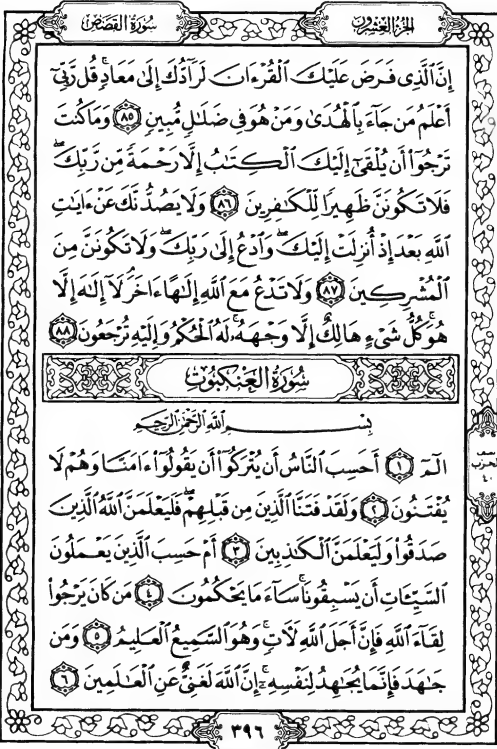 سُورَةُ القَصَصِ
الجزء العشرون
إِنَّ ٱلَّذِى فَرَضَ عَلَيْكَ ٱلْقُرْءَانَ لَرَآدُّكَ إِلَىٰ مَعَادٍۚ قُل رَّبِّىٓ
أَعْلَمُ مَن جَآءَ بِٱلْهُدَىٰ وَمَنْ هُوَ فِى ضَلَٰلٍ مُّبِينٍ ٨٥ وَمَا كُنتَ
تَرْجُوٓا۟ أَن يُلْقَىٰٓ إِلَيْكَ ٱلْكِتَٰبُ إِلَّا رَحْمَةً مِّن رَّبِّكَۖ
فَلَا تَكُونَنَّ ظَهِيرًا لِّلْكَٰفِرِينَ ٨٦ وَلَا يَصُدُّنَّكَ عَنْ ءَايَٰتِ
ٱللَّهِ بَعْدَ إِذْ أُنزِلَتْ إِلَيْكَۖ وَٱدْعُ إِلَىٰ رَبِّكَۖ وَلَا تَكُونَنَّ مِنَ
ٱلْمُشْرِكِينَ ٨٧ وَلَا تَدْعُ مَعَ ٱللَّهِ إِلَٰهًا ءَاخَرَۘ لَآ إِلَٰهَ إِلَّا
هُوَۚ كُلُّ شَىْءٍ هَالِكٌ إِلَّا وَجْهَهُۥۚ لَهُ ٱلْحُكْمُ وَإِلَيْهِ تُرْجَعُونَ ٨٨
سُورَةُ العَنكَبُوتِ
بِسْمِ ٱللَّهِ ٱلرَّحْمَٰنِ ٱلرَّحِيمِ
الٓمٓ ١ أَحَسِبَ ٱلنَّاسُ أَن يُتْرَكُوٓا۟ أَن يَقُولُوٓا۟ ءَامَنَّا وَهُمْ لَا
يُفْتَنُونَ ٢ وَلَقَدْ فَتَنَّا ٱلَّذِينَ مِن قَبْلِهِمْۖ فَلَيَعْلَمَنَّ ٱللَّهُ ٱلَّذِينَ
صَدَقُوا۟ وَلَيَعْلَمَنَّ ٱلْكَٰذِبِينَ ٣ أَمْ حَسِبَ ٱلَّذِينَ يَعْمَلُونَ
ٱلسَّيِّـَٔاتِ أَن يَسْبِقُونَاۚ سَآءَ مَا يَحْكُمُونَ ٤ مَن كَانَ يَرْجُوا۟
لِقَآءَ ٱللَّهِ فَإِنَّ أَجَلَ ٱللَّهِ لَءَاتٍۚ وَهُوَ ٱلسَّمِيعُ ٱلْعَلِيمُ ٥ وَمَن
جَٰهَدَ فَإِنَّمَا يُجَٰهِدُ لِنَفْسِهِۦٓۚ إِنَّ ٱللَّهَ لَغَنِىٌّ عَنِ ٱلْعَٰلَمِينَ ٦
نصف
الحزب
٤٠
٣٩٦